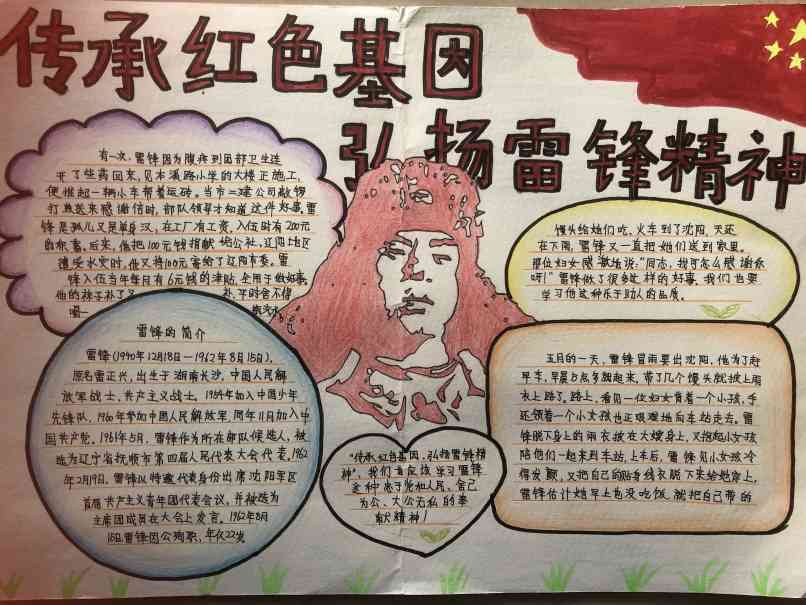 传承红色基因
弘扬雷锋精神
有一次,雷锋因为腹疼到团部卫生连
开了些药回来,见本溪路小学的大楼正施工,
便推起一辆小车帮着运砖。当市二建公司敲锣
打鼓送来感谢信时,部队领导才知道这件好事。雷
锋是孤儿又是单身汉,在工厂有工资,入伍时有200元
的积蓄。后来,他把100元钱捐献给公社,辽阳地区
遭受水灾时,他又将100元寄给了辽阳市委。雷
锋入伍当年每月有6元钱的津贴,全用于做好事。
他的袜子补了又补,平时舍不得
喝一
馒头给她们吃。火车到了沈阳,天还
在下雨,雷锋又一直把她们送到家里。
那位妇女感激地说:“同志,我可怎么感谢你
呀!”雷锋做了很多这样的好事。我们也要
学习他这种乐于助人的品质。
雷锋的简介
雷锋(1940年12月18日—1962年8月15日),
原名雷正兴,出生于湖南长沙,中国人民解
放军战士,共产主义战士。1954年加入中国少年
先锋队,1960年参加中国人民解放军,同年11月加入中
国共产党。1961年5月,雷锋作为所在部队候选人,被
选为辽宁省抚顺市第四届人民代表大会代表。1962
年2月19日,雷锋以特邀代表身份出席沈阳军区
首届共产主义青年团代表会议,并被选为
主席团成员在大会上发言。1962年8月
15日雷锋因公殉职,年仅22岁
“传承红色基因,弘扬雷锋精
神”,我们也应该学习雷锋
这种忠于党和人民、舍己
为公、大公无私的奉
献精神!
五月的一天,雷锋冒雨要出沈阳,他为了赶
早车,早晨5点多就起来,带了几个馒头就披上雨
衣上路了。路上,看见一位妇女背着一个小孩,手
还领着一个小女孩也正艰难地向车站走去。雷
锋脱下身上的雨衣披在大嫂身上,又抱起小女孩
陪他们一起来到车站,上车后,雷锋见小女孩冷
得发颤,又把自己的贴身线衣脱下来给她穿上,
雷锋估计她早上也没吃饭,就把自己带的